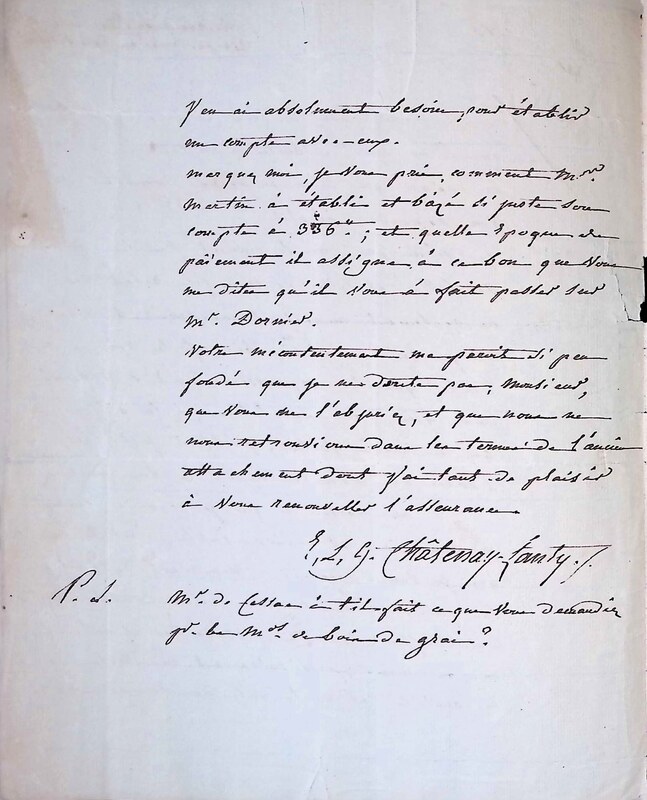 j'en ai absolument besoin pour établir
un compte avec eux.
marquez moi, je vous prie, comment Mr.
Martin à établi et bâzé si juste son
compte à 336 tt; et quelle Epoque de
paiement il assigne à ce bon que vous
me dites qu'il vous à fait passer sur
Mr. Dornier.
Votre mécontentement me paroit si peu
fondé que je ne doute pas, Monsieur,
que vous ne l'abjuriez, et que nous ne
nous retrouvions dans les termes de l'ancien
attachement dont j'ai tant de plaisir
à vous renouveller l'assurance.
E. L. G. Châtenay-Lanty./.
P. S. Mr. de Cessac à t-il fait ce que vous demandiez
pr. les Mds. de bois de grai?